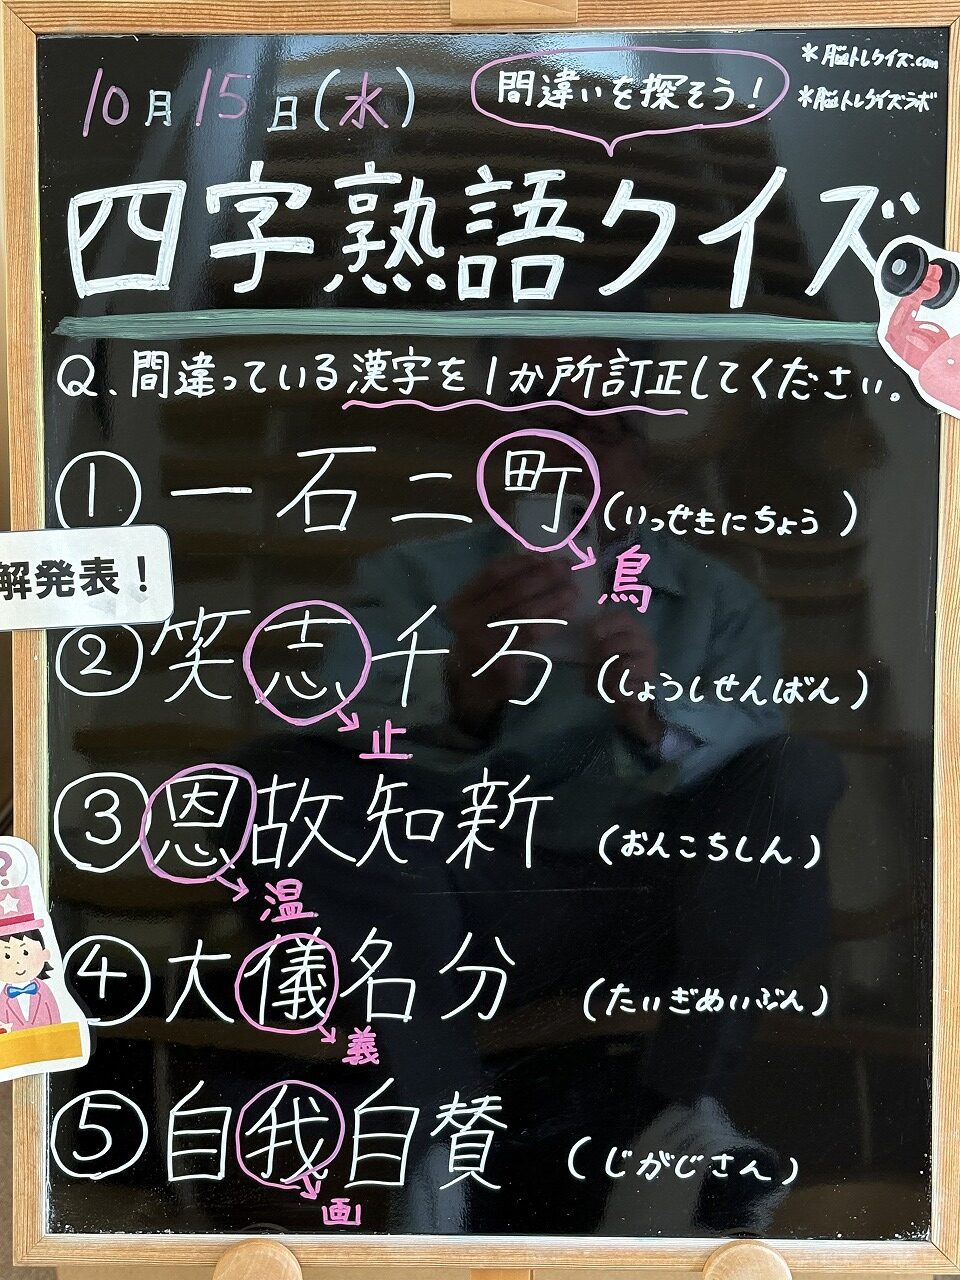 *脳トレクイズ.com
*脳トレクイズラボ
10月15日(水)
間違いを探そう!
四字熟語クイズ
Q、間違っている漢字を1か所訂正してください。
① 一石二町(いっせきにちょう)
鳥
解発表!
② 笑志千万(しょうしせんばん)
止
③ 恩故知新(おんこちしん)
温
④ 大儀名分(たいぎめいぶん)
義
?
⑤ 自我自賛(じがじさん)
画